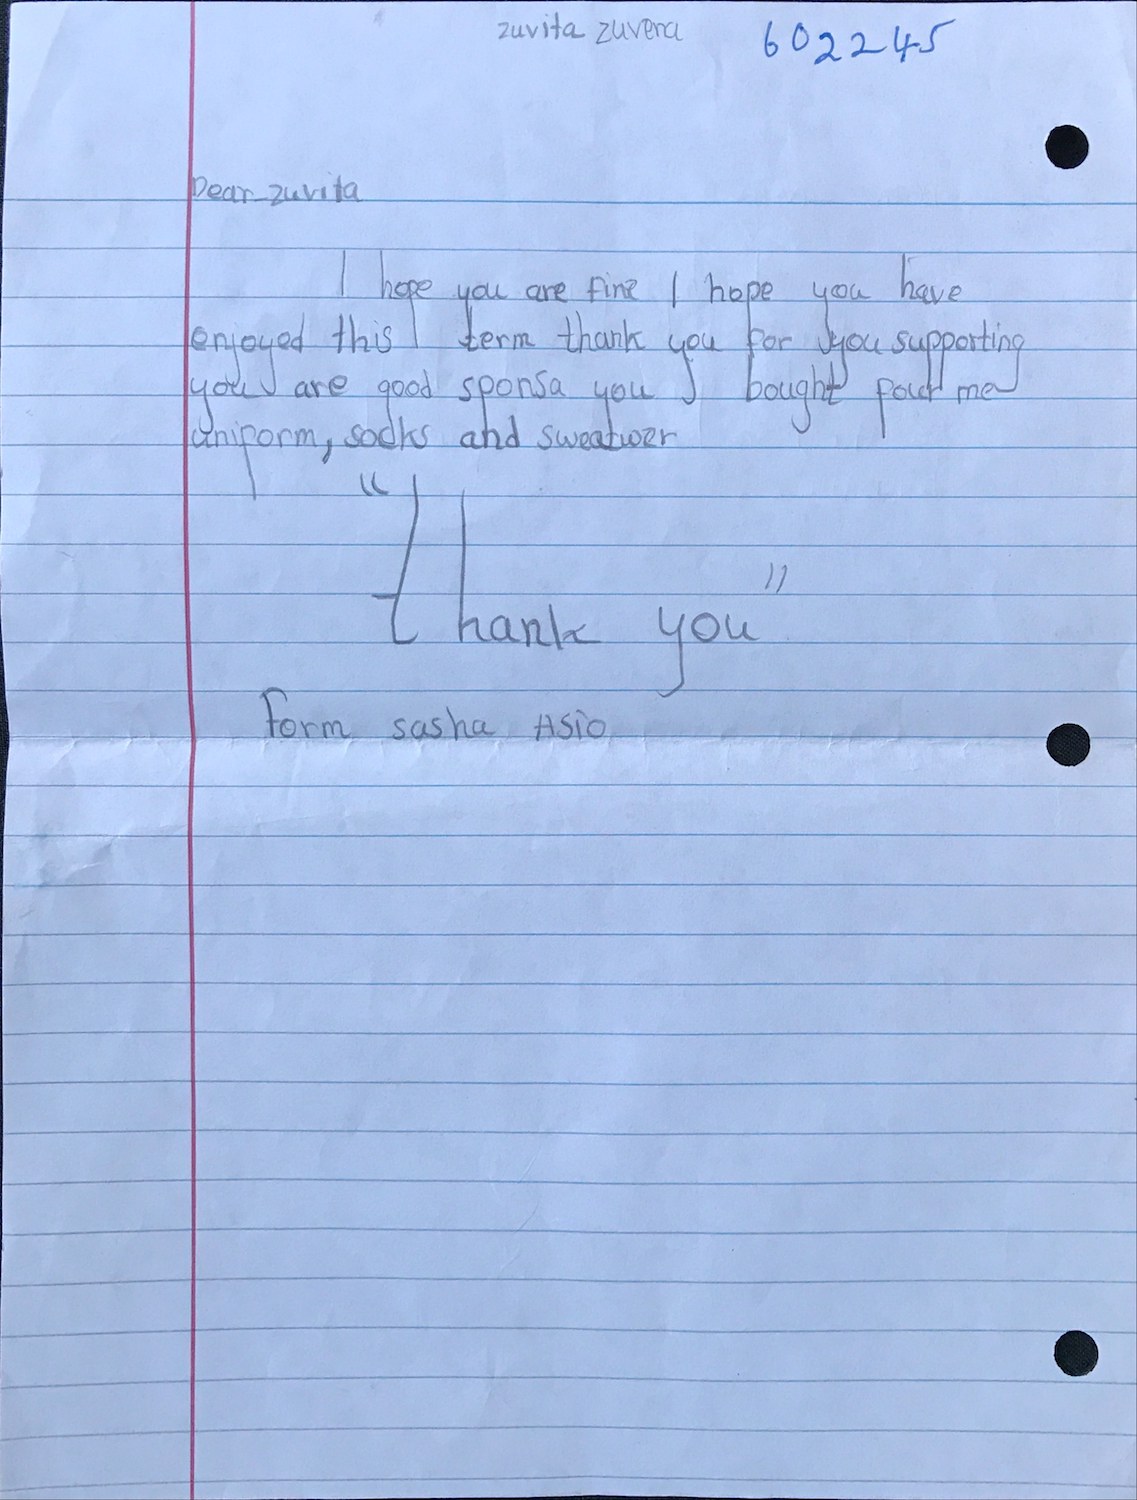 zuvita zuvena 602245
Dear zuvita
I hope you are fine I hope you have
enjoyed this term thank you for you supporting
you are good sponsa you bought pour me
uniporm, socks and sweatwer
"thank you"
Form sasha Asio